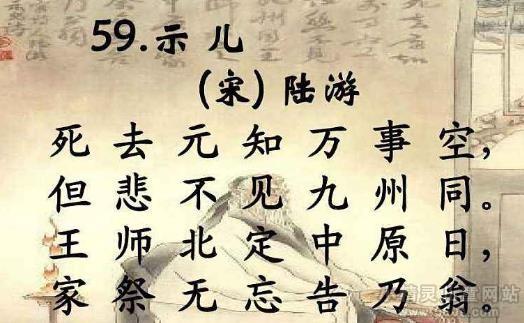 59.示儿
(宋)陆游
死去元知万事空，
但悲不见九州同。
王师北定中原日，
家祭无忘告乃翁。